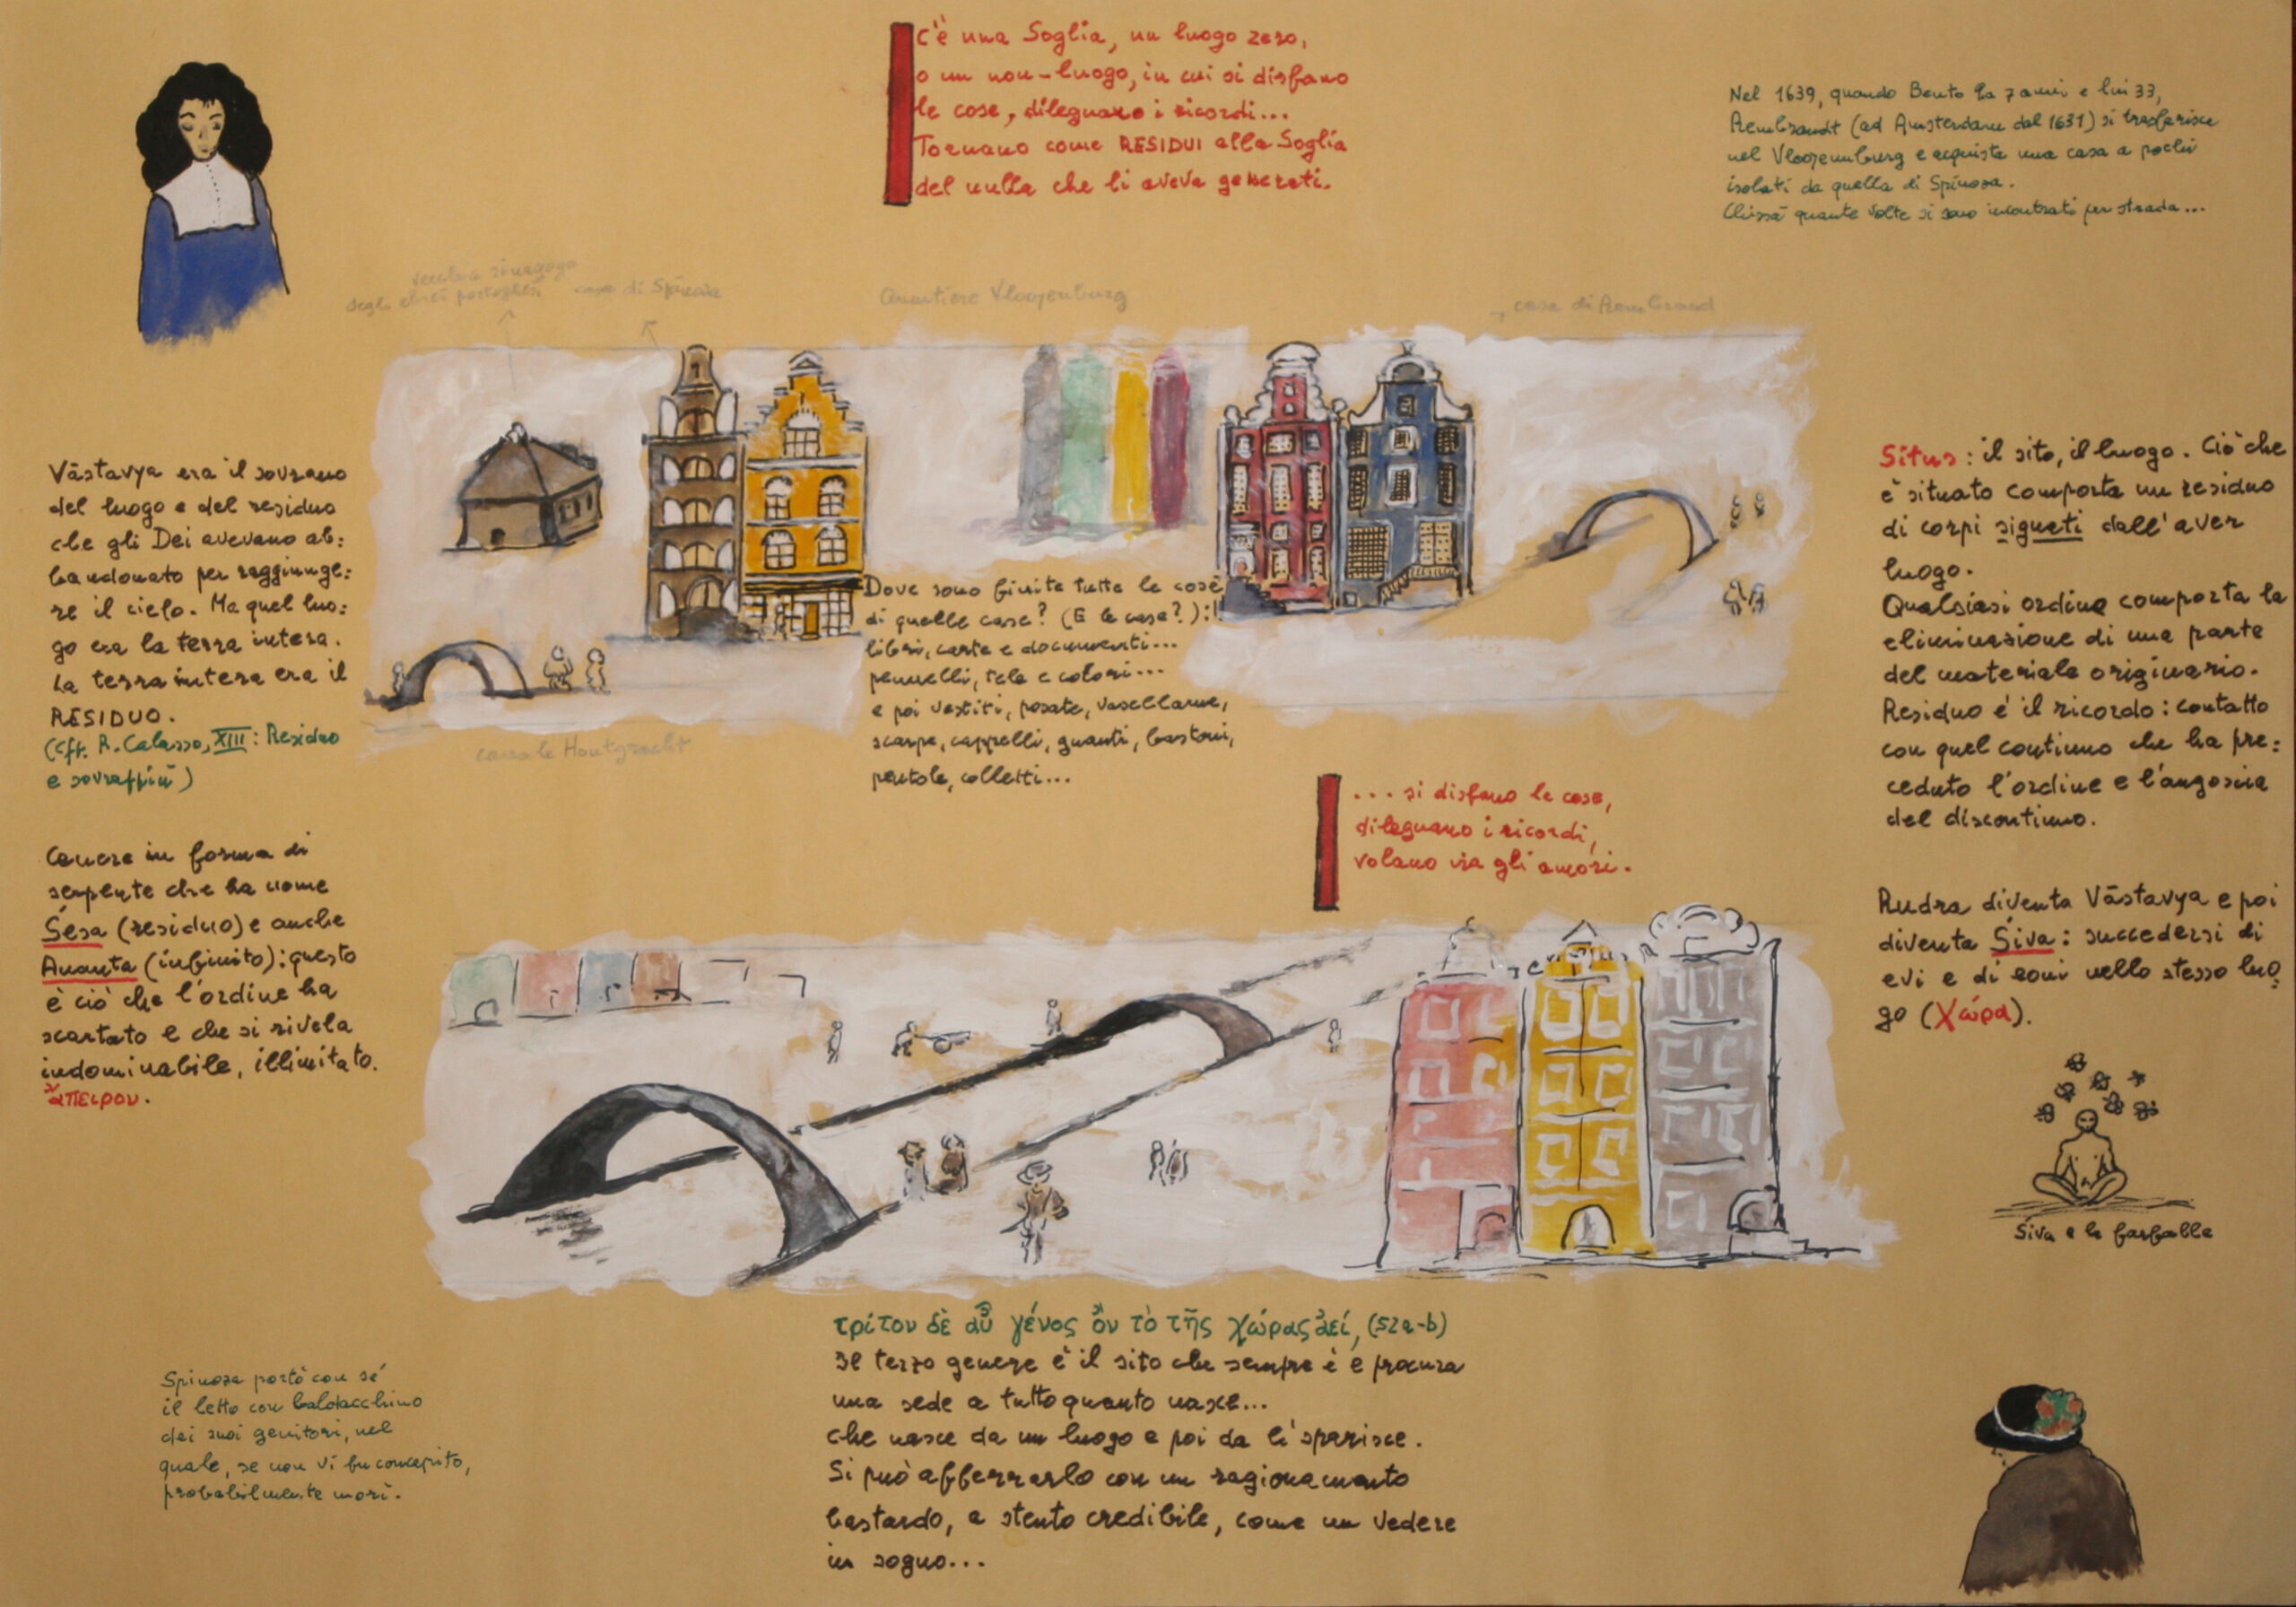 C'è una Soglia, un luogo zero,
o un non-luogo, in cui si disfano
le cose, dileguano i ricordi...
Tornano come RESIDUI alla Soglia
del nulla che li aveva generati.
Nel 1639, quando Bento ha 7 anni e lui 33,
Rembrandt (ad Amsterdam dal 1631) si trasferisce
nel Vlooyemburg e acquista una casa a pochi
isolati da quella di Spinoza.
Chissà quante volte si sono incontrati per strada...
vecchia sinagoga
degli ebrei portoghesi
casa di Spinoza
Quartiere Vlooyenburg
casa di Rembrand
Vāstavya era il sovrano
del luogo e del residuo
che gli Dei avevano ab:
bandonato per raggiunge:
re il cielo. Ma quel luo:
go era la terra intera.
La terra intera era il
RESIDUO.
(cfr. R. Calasso, XIII: Residuo
e sovrappiù)
canale Houtgracht
Dove sono finite tutte le cose
di quelle case? (E le case?):!
libri, carte e documenti...
pennelli, tele e colori...
e poi vestiti, posate, vasellame,
scarpe, cappelli, guanti, bastoni,
pentole, colletti...
Situs: il sito, il luogo. Ciò che
è situato comporta un residuo
di corpi signati dall'aver
luogo.
Qualsiasi ordine comporta la
eliminazione di una parte
del materiale originario.
Residuo é il ricordo: contatto
con quel continuo che ha pre:
ceduto l'ordine e l'angoscia
del discontinuo.
... si disfano le cose,
dileguano i ricordi,
volano via gli amori.
Cenere in forma di
serpente che ha nome
Śesa (residuo) e anche
Ananta (infinito): questo
è ciò che l'ordine ha
scartato e che si rivela
indominabile, illimitato.
ἄπειρον.
Rudra diventa Vāstavya e poi
diventa Śiva: succedersi di
evi e di eoni nello stesso luo
go (Χώρα).
Śiva e le farfalle
τρίτον δὲ αὖ γένος ὂν τὸ τῆς χώρας ἀεί, (52a-b)
Il terzo genere è il sito che sempre è e procura
una sede a tutto quanto nasce...
che nasce da un luogo e poi da lì sparisce.
Si può afferrarlo con un ragionamento
bastardo, a stento credibile, come un vedere
in sogno...
Spinoza portò con sé
il letto con baldacchino
dei suoi genitori, nel
quale, se non vi fu concepito,
probabilmente morì.